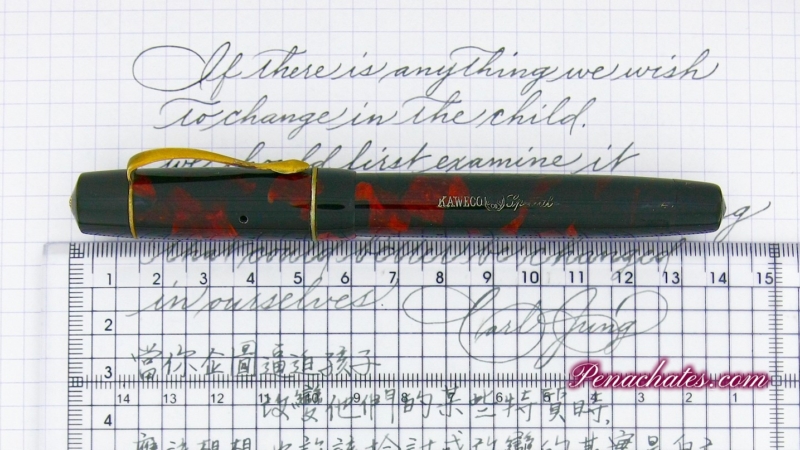 If there is anything we wish
to change in the child.
we should first examine it
KAWECO Special
that could better be changed
1 2 3 4 5 6 7 8 9 10 11 12 13 14 15
2
in ourselves.
Carl Jung
3
當你企圖逼迫孩子
Penachates.com
14 13 12 11 10
3 2 1
改變他們的某些特質時,
4